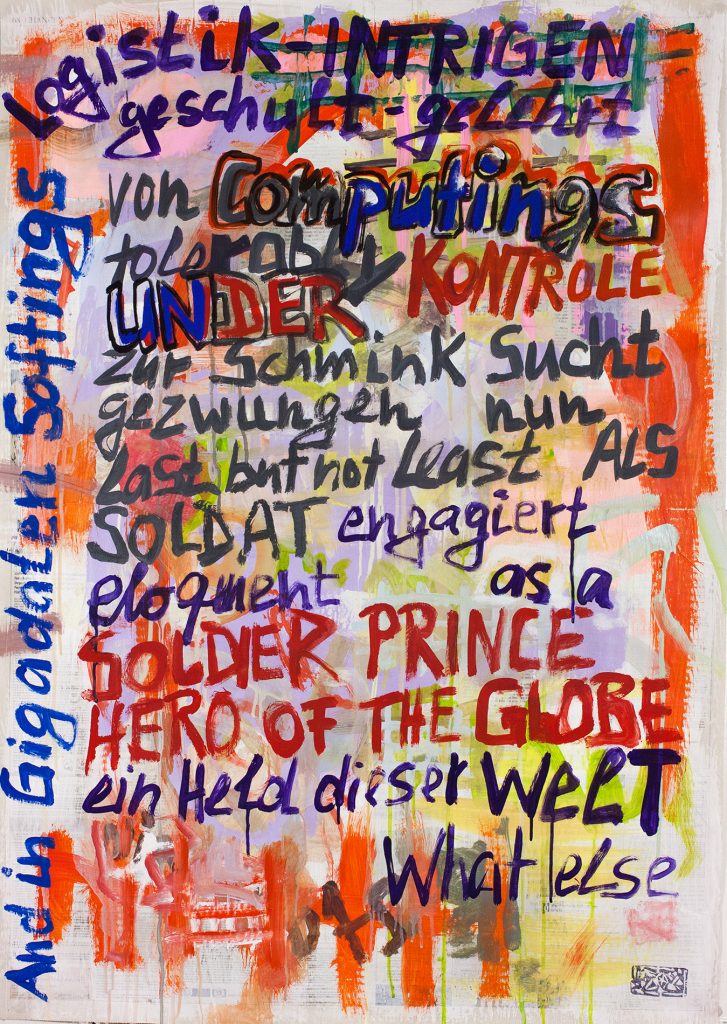 Logistik-INTRIGEN
geschult-gelehrt
von Computings
tolerably KONTROLE
UNDER
zur Schmink Sucht
gezwungen nun
Last but not Least ALS
SOLDAT engagiert
eloqment as a
SOLDIER PRINCE
HERO OF THE GLOBE
ein Held dieser WELT
What else
And in Gigadaten Softings